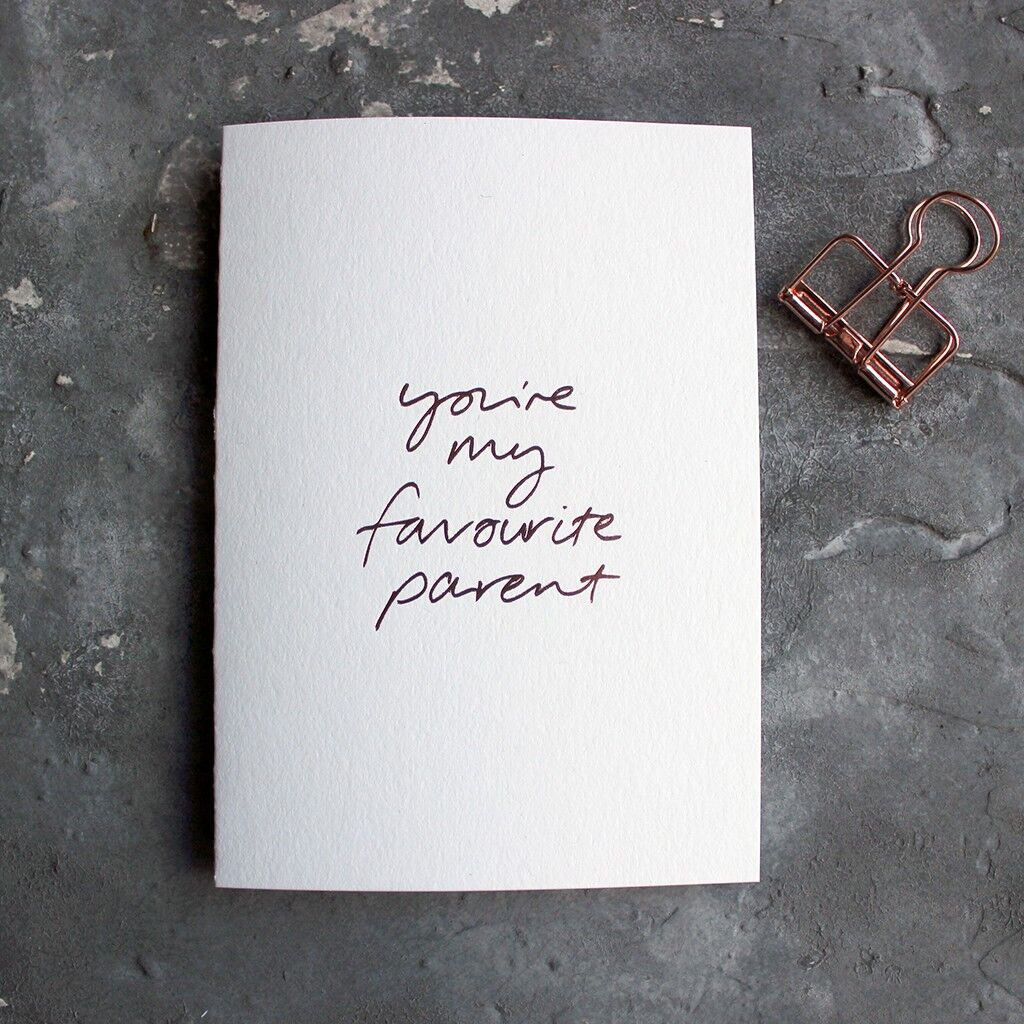 you're
my
favourite
parent